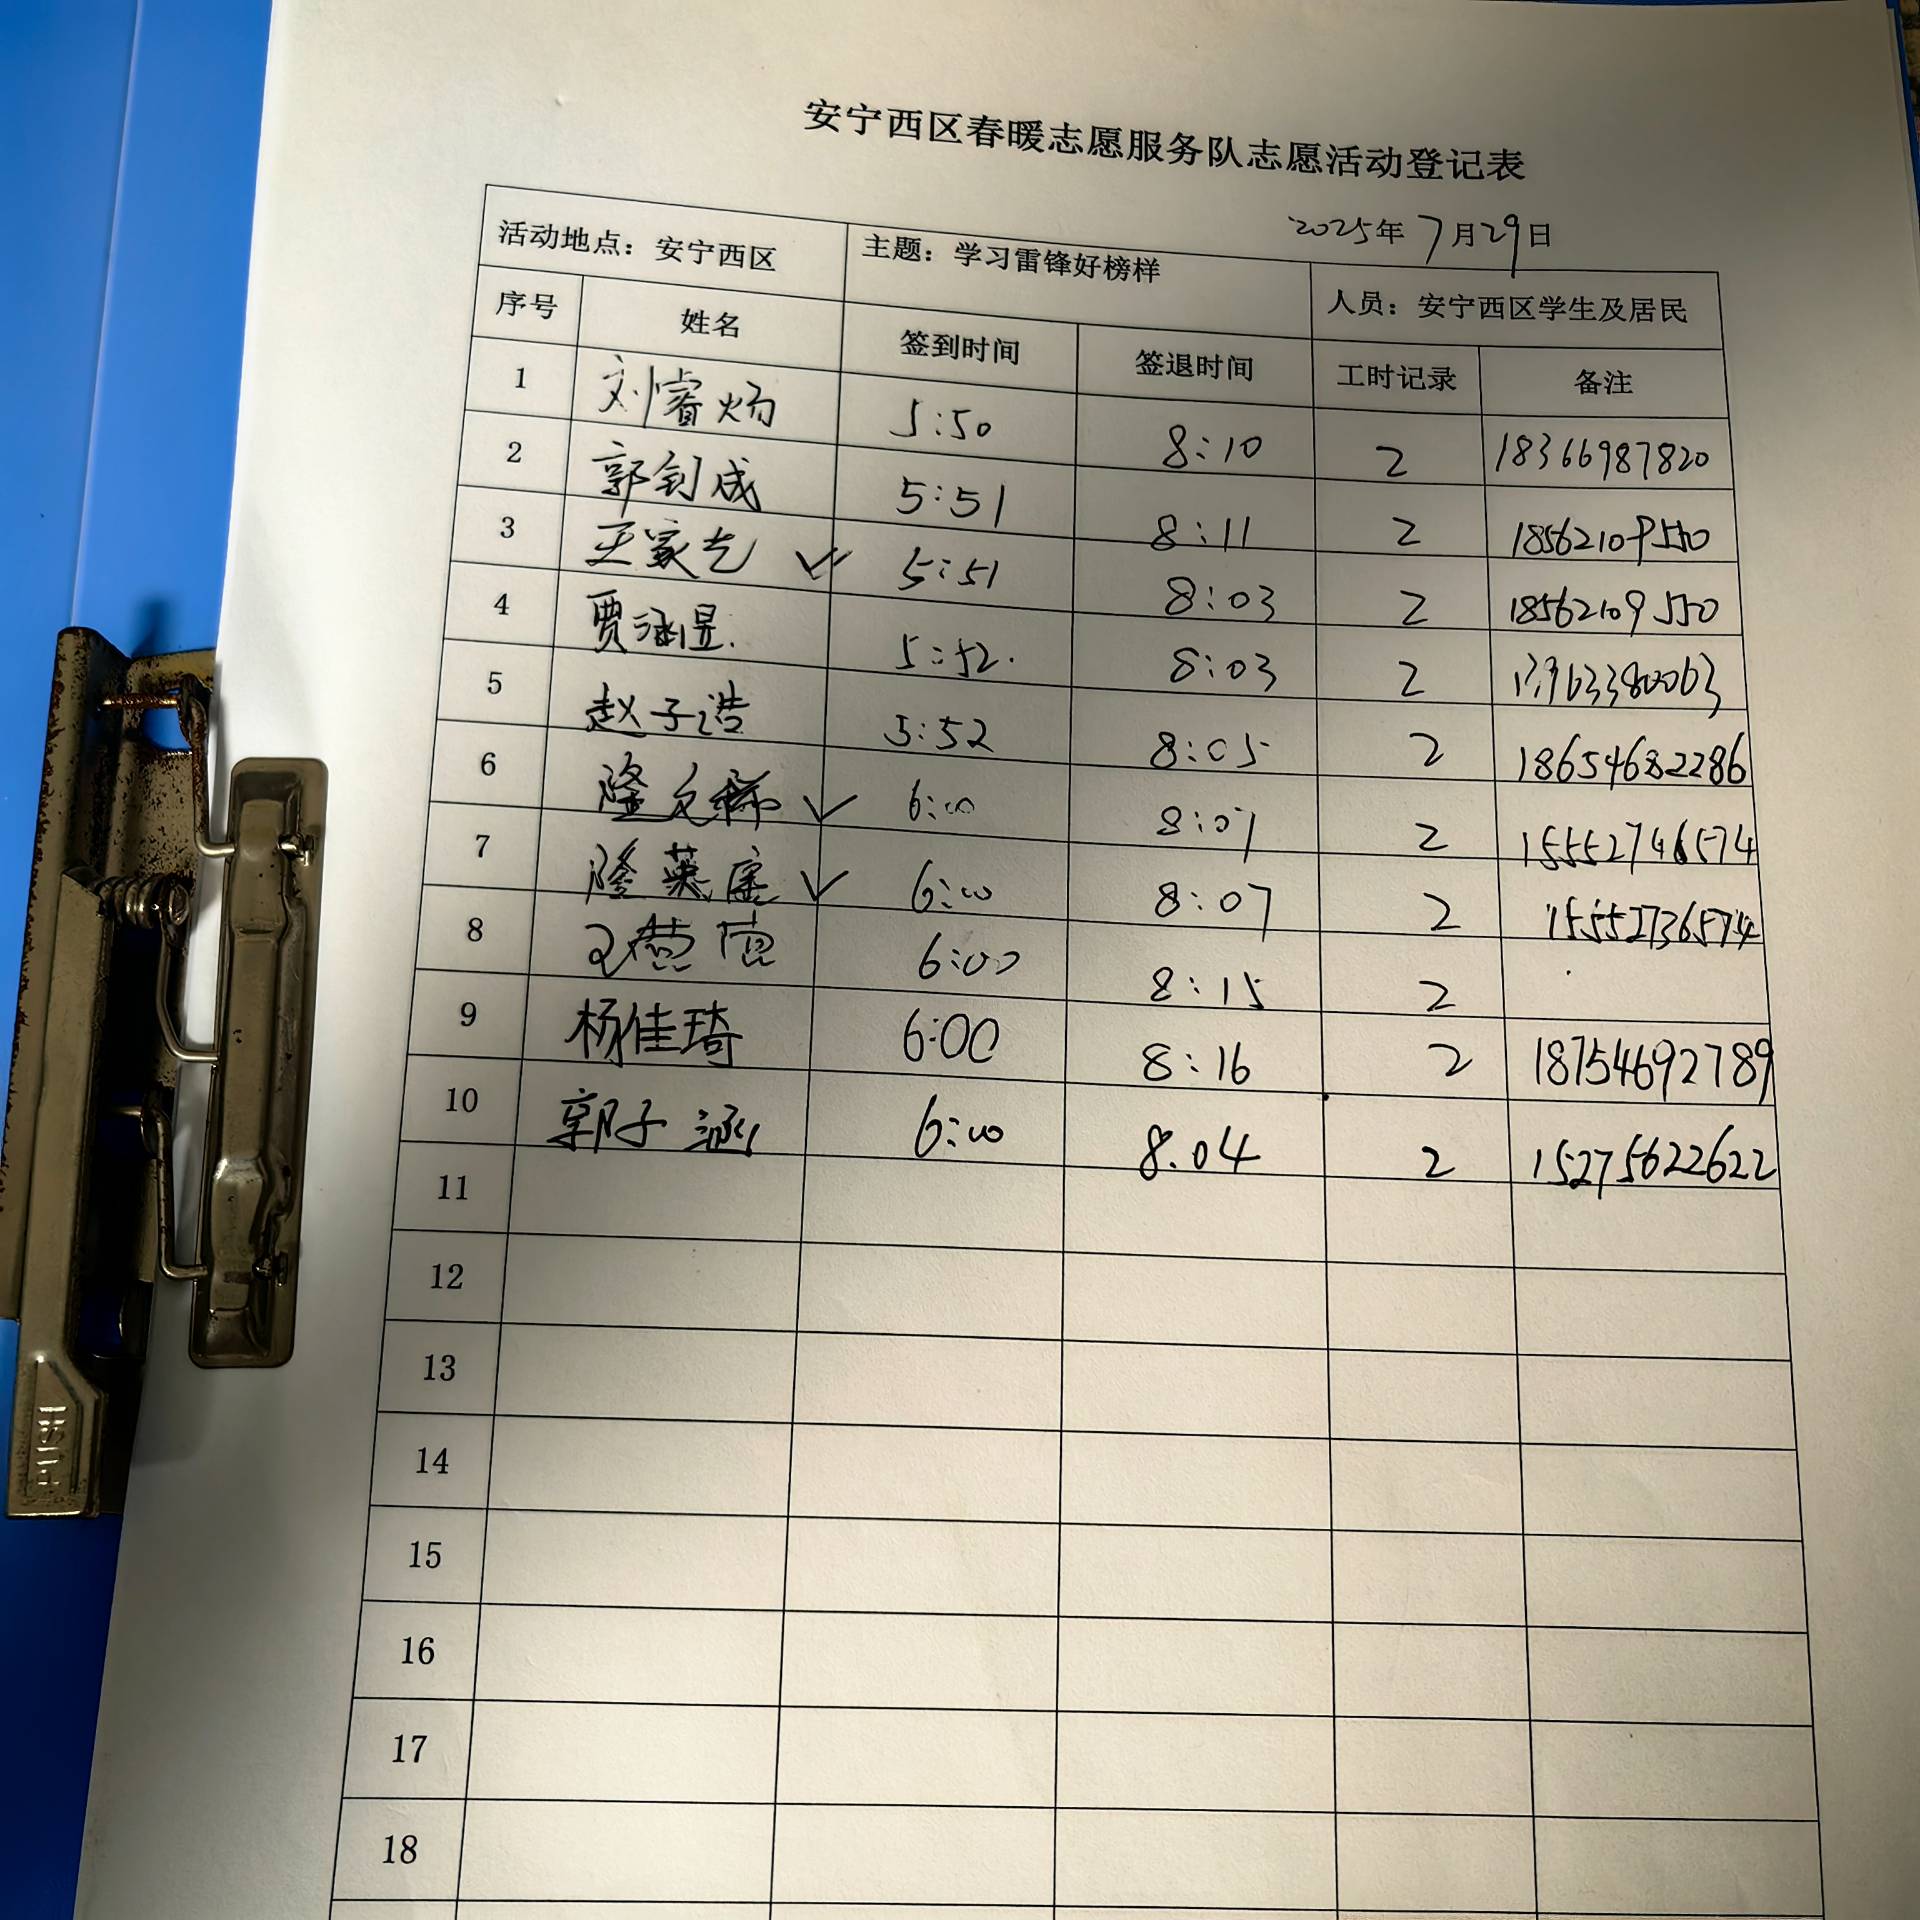 安宁西区春暖志愿服务队志愿活动登记表
2025年7月29日
活动地点：安宁西区 主题：学习雷锋好榜样 人员：安宁西区学生及居民
序号 姓名 签到时间 签退时间 工时记录 备注
1 刘睿炀 5:50 8:10 2 18366987820
2 郭钊成 5:51 8:11 2 18562109550
3 王家艺 5:51 8:03 2 18562109550
4 贾涵昱 5:52 8:03 2
5 赵子浩 5:52 8:05 2 18654682286
6 隆 6:00 8:07 2 15552746574
7 隆英 6:00 8:07 2 15552736574
8 6:00 8:15 2
9 杨佳琦 6:00 8:16 2 18754692789
10 郭子涵 6:00 8.04 2 15275622622
11
12
13
14
15
16
17
18
PUSH